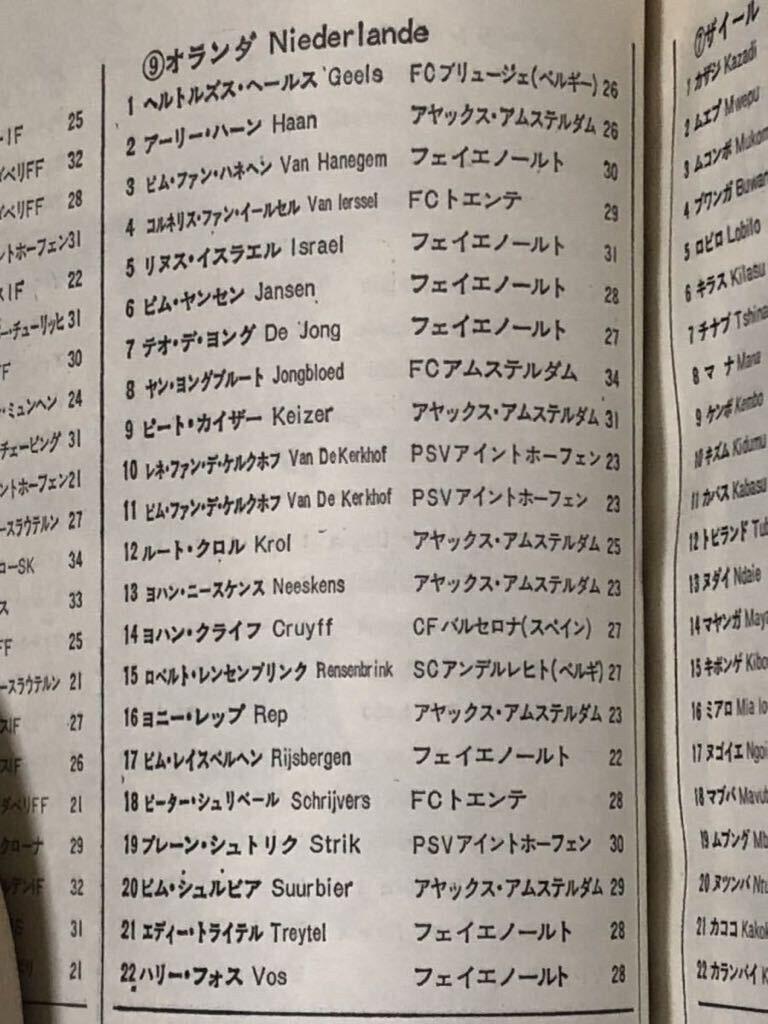 ⑨オランダ Niederlande
1 ヘルトルズス・ヘールス Geels FCブリュージェ(ベルギー) 26
2 アーリー・ハーン Haan アヤックス・アムステルダム 26
3 ビム・ファン・ハネヘン Van Hanegem フェイエノールト 30
4 コルネリス・ファン・イールセル Van Ierssel FCトエンテ 29
5 リヌス・イスラエル Israel フェイエノールト 31
6 ビム・ヤンセン Jansen フェイエノールト 28
7 テオ・デ・ヨング De Jong フェイエノールト 27
8 ヤン・ヨングブルート Jongbloed FCアムステルダム 34
9 ピート・カイザー Keizer アヤックス・アムステルダム 31
10 レネ・ファン・デ・ケルクホフ Van DeKerkhof PSVアイントホーフェン 23
11 ビム・ファン・デ・ケルクホフ Van De Kerkhof PSVアイントホーフェン 23
12 ルート・クロル Krol アヤックス・アムステルダム 25
13 ヨハン・ニースケンス Neeskens アヤックス・アムステルダム 23
14 ヨハン・クライフ Cruyff CFバルセロナ(スペイン) 27
15 ロベルト・レンセンブリンク Rensenbrink SCアンデルレヒト(ベルギ) 27
16 ヨニー・レップ Rep アヤックス・アムステルダム 23
17 ビム・レイスベルヘン Rijsbergen フェイエノールト 22
18 ピーター・シュリベール Schrijvers FCトエンテ 28
19 プレーン・シュトリク Strik PSVアイントホーフェン 30
20 ビム・シュルビア Suurbier アヤックス・アムステルダム 29
21 エディー・トライテル Treytel フェイエノールト 28
22 ハリー・フォス Vos フェイエノールト 28
IF 25
イベリFF 32
イベリFF 28
ントホーフェン 31
スIF 22
ー・チューリッヒ 31
F 30
ン・ミュンヘン 24
チェーピング 31
ントホーフェン 21
ースラウテルン 27
コーSK 34
ス 33
FF 25
ースラウテルン 21
スIF 27
スIF 26
ダベリFF 21
クローナ 29
デルンIF 32
31
21
⑦ザイール
1 カザジ Kazadi
2 ムエプ Mwepu
3 ムコンボ Mukom
4 ブワンガ Buwan
5 ロビロ Lobilo
6 キラス Kilasu
7 チナブ Tshina
8 マナ Mana
9 ケンボ Kembo
10 キズム Kidumu
11 カバス Kabasu
12 トビランド Tub
13 ヌダイ Ndaie
14 マヤンガ Maya
15 キボンゲ Kibo
16 ミアロ Mialo
17 ヌゴイエ Ngoi
18 マブバ Mavub
19 ムブング Mb
20 ヌツンバ Ntu
21 カココ Kakok
22 カランバイ K